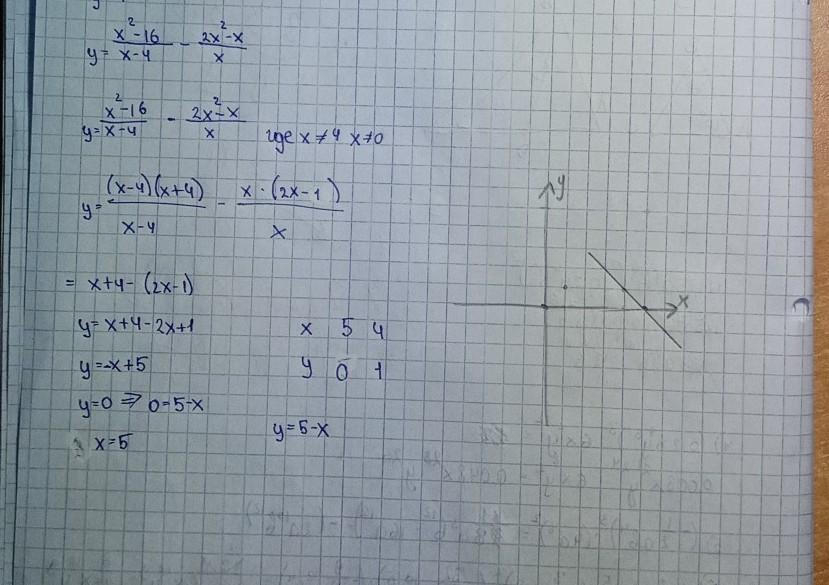 y = (x²-16)/(x-4) - (2x²-x)/x
y = (x²-16)/(x-4) - (2x²-x)/x где x≠4 x≠0
y = (x-4)(x+4)/(x-4) - x·(2x-1)/x
= x+4-(2x-1)
y=x+4-2x+1
y=-x+5
y=0 ⇒ 0=5-x
x=5
x 5 4
y 0 1
y=5-x
y
x